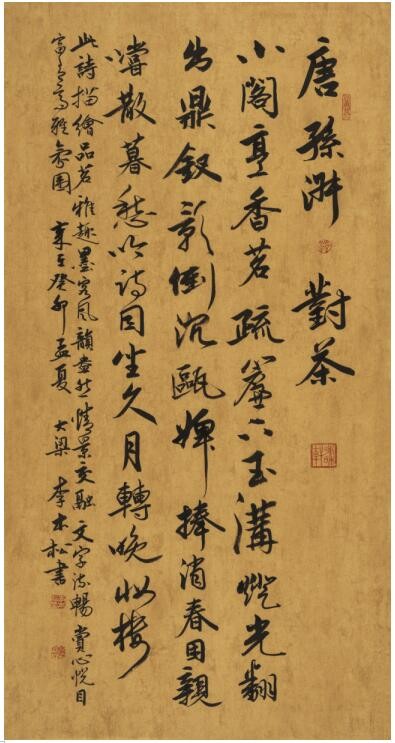 唐 孫淑 對茶
小閣烹香茗疏簾下玉溝燈光翻
出鼎釵影倒沉甌婢捧消春困親
嚐散暮愁吟詩因坐久月轉晚妝樓
此詩描繪品茗雅趣墨客風韻盎然情景交融文字流暢賞心悅目
富有高雅氛圍 歲在癸卯孟夏 大梁 李木松書